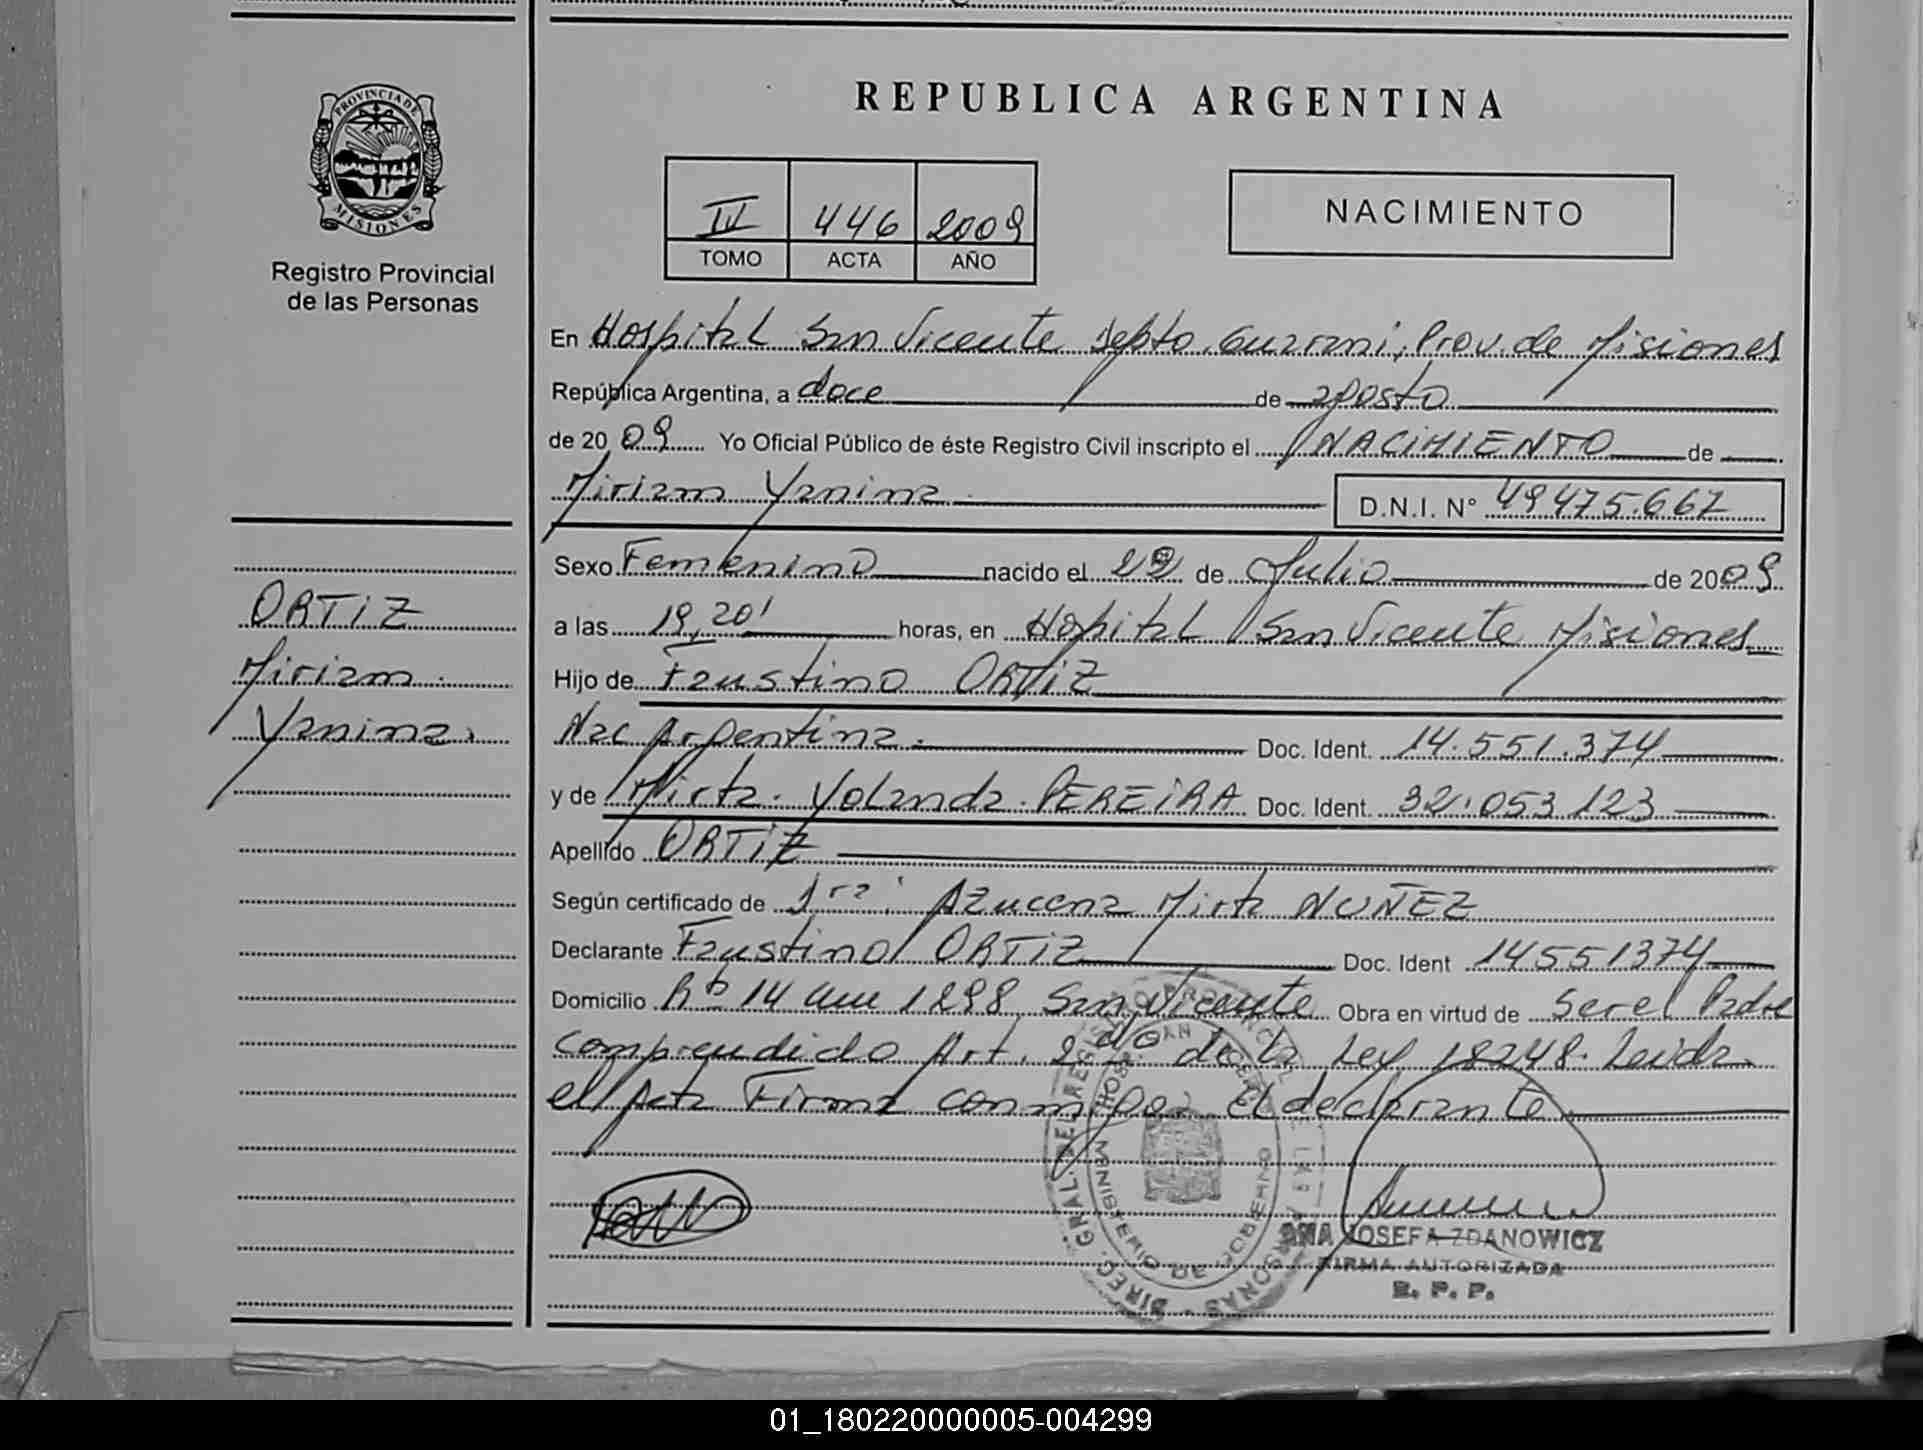 REPUBLICA ARGENTINA
PROVINCIA DE MISIONES
Registro Provincial
de las Personas
IV 446 2009
TOMO ACTA AÑO
NACIMIENTO
En Hospital San Vicente Depto. Guarani, Prov. de Misiones
República Argentina, a doce de agosto
de 2009 Yo Oficial Público de éste Registro Civil inscripto el NACIMIENTO de
Miriam Yanina D.N.I. N° 49475.667
Sexo Femenino nacido el 22 de Julio de 2009
a las 19,20' horas, en Hospital San Vicente Misiones
Hijo de Faustino ORTIZ
Nac Argentina. Doc. Ident. 14.551.374
y de Mirta Yolanda PEREIRA Doc. Ident. 32.053.123
Apellido ORTIZ
Según certificado de Azucena Mirta NUÑEZ
Declarante Faustino ORTIZ Doc. Ident 14551374
Domicilio 14 1298 San Vicente Obra en virtud de ser el Padre
comprendido Art. 2do de la Ley 18248. Leida
el Acta Firma conmigo: El declarante
ORTIZ
Miriam
Yanina.
DIREC. GRAL. DEL REGISTRO PROVINCIAL DE LAS PERSONAS
MINISTERIO DE GOBIERNO
ANA JOSEFA ZDANOWICZ
FIRMA AUTORIZADA
R. P. P.
01_180220000005-004299